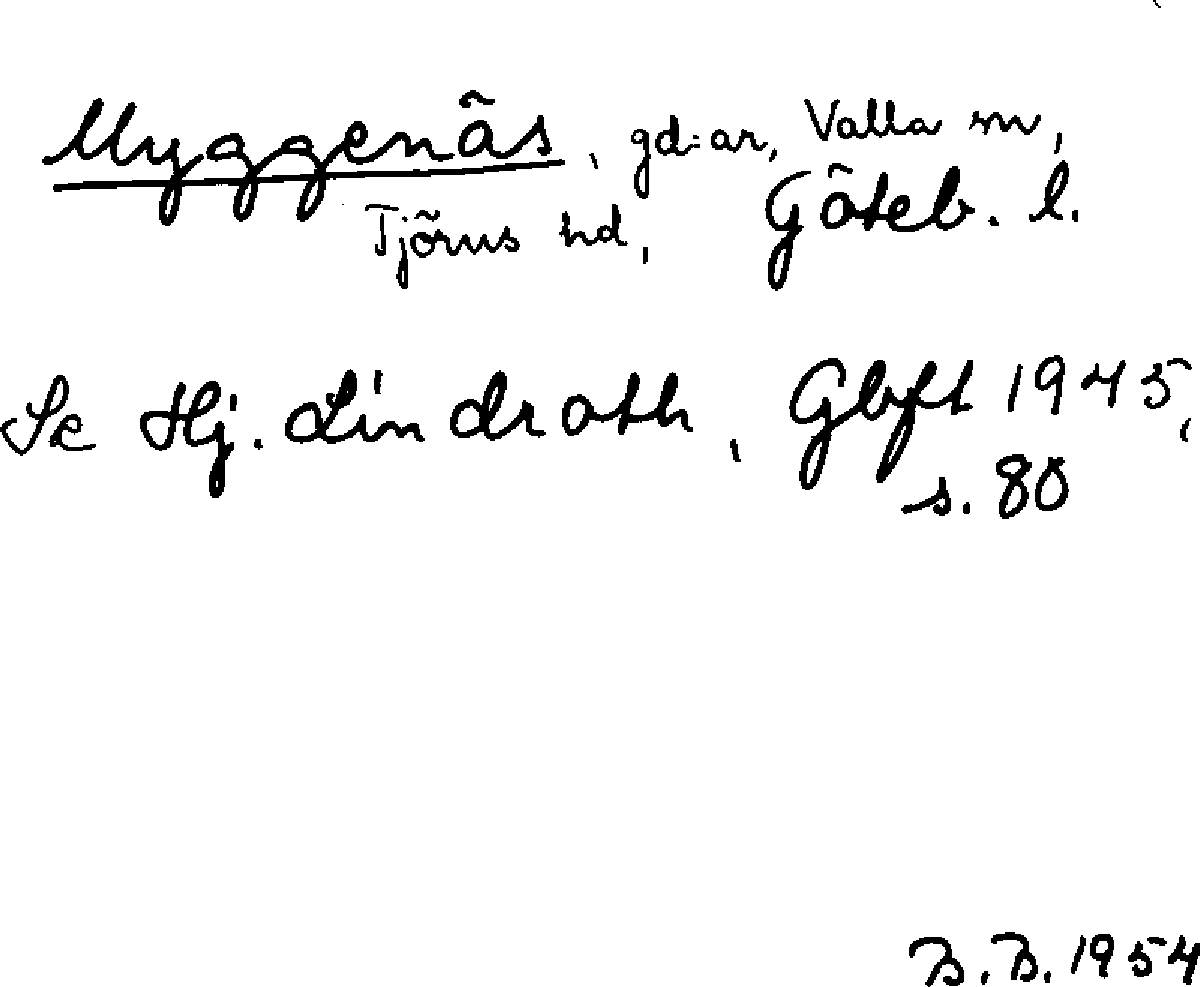 Myggenäs, gd:ar, Valla sn,
Tjörns hd, Göteb. l.
Se Hj. Lindroth, Gbgft 1945,
s. 80
B.B. 1954